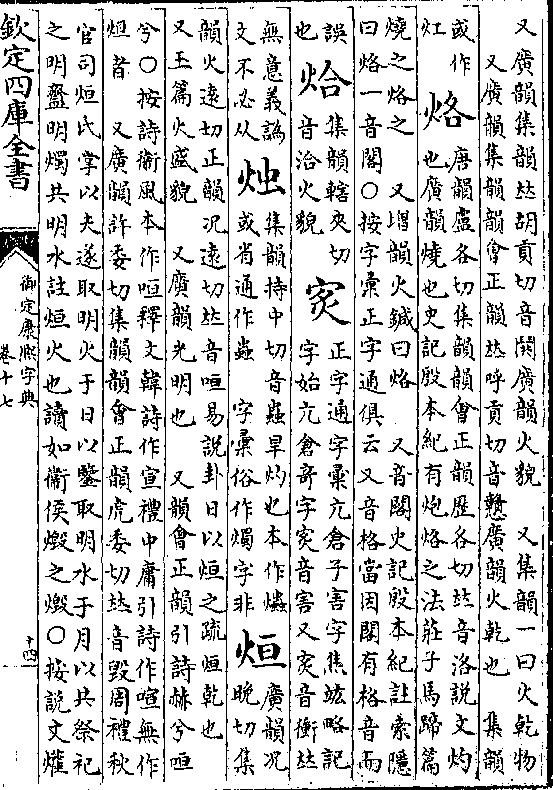 又廣韻集韻𠀤胡貢切音閧廣韻火貌 又集韻一曰火乾物
又廣韻集韻韻會正韻𠀤呼貢切音戇廣韻火乾也 集韻
或作
灴
烙
唐韻盧各切集韻韻會正韻歷各切𠀤音洛說文灼
也廣韻燒也史記殷本紀有炮烙之法莊子馬蹄篇
燒之烙之 又增韻火鍼曰烙 又音閣史記殷本紀註索隱
曰烙一音閣○按字彙正字通俱云又音格當因閣有格音而
誤
也
烚
集韻轄夾切
音洽火貌
正字通字彙亢倉子害字焦竑略記
字始亢倉奇字音害又音衝𠀤
無意義譌
文不必从
烛
集韻持中切音蟲旱灼也本作爞
或省通作蟲 字彙俗作燭字非
烜
廣韻况
晚切集
韻火遠切正韻况遠切𠀤音咺易說卦日以烜之疏烜乾也
又玉篇火盛貌 又廣韻光明也 又韻會正韻引詩赫兮咺
兮○按詩衞風本作咺釋文韓詩作宣禮中庸引詩作喧無作
烜者 又廣韻許委切集韻韻會正韻虎委切𠀤音毀周禮秋
官司烜氏掌以夫遂取明火于日以鑒取明水于月以共祭祀
之明齍明燭共明水註烜火也讀如衞侯燬之燬○按說文爟
欽定四庫全書
御定康熙字典
卷十七
十四